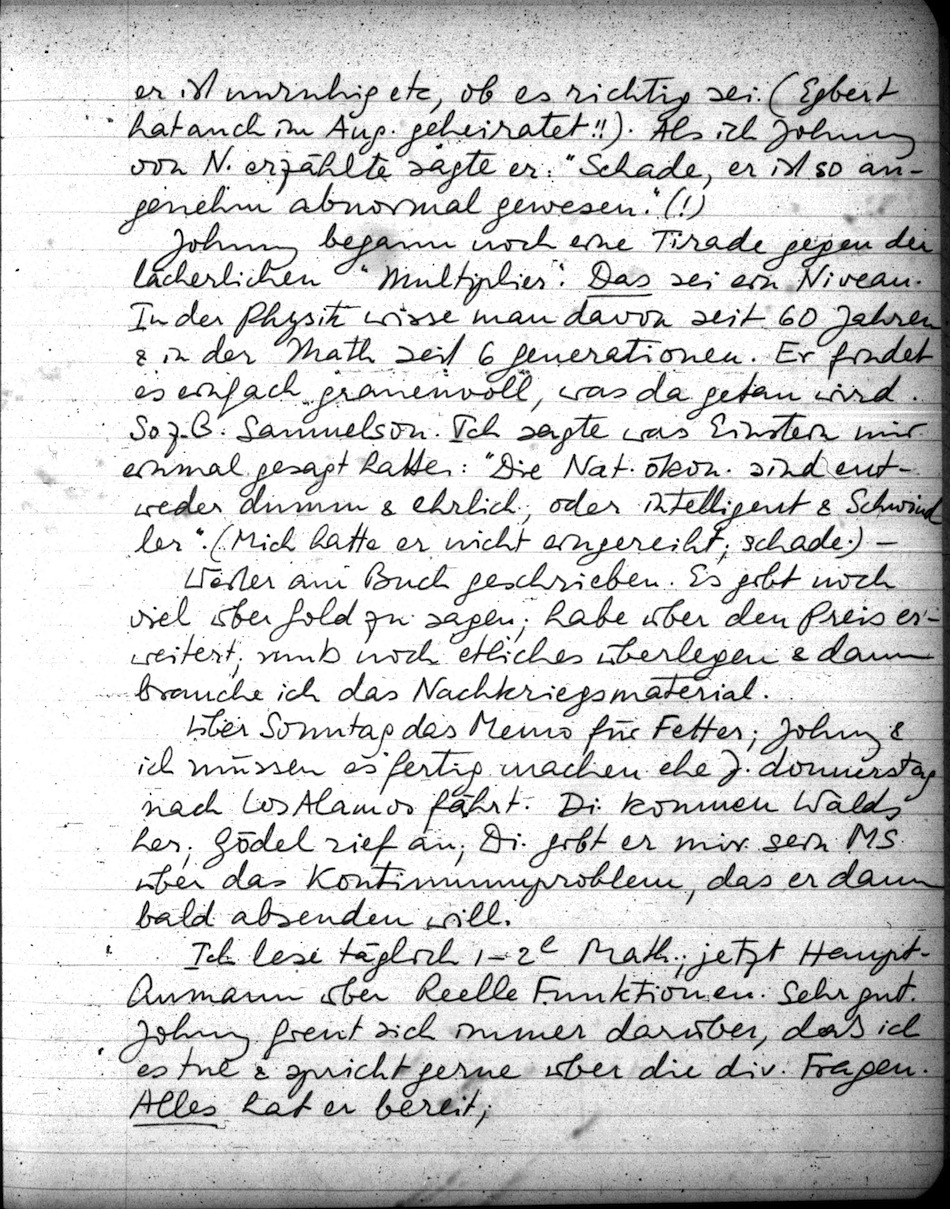 er ist unruhig etc, ob es richtig sei. (Egbert
hat auch im Aug. geheiratet!!). Als ich Johnny
von N. erzählte sagte er: "Schade, er ist so an-
genehm abnormal gewesen." (!)
Johnny begann noch eine Tirade gegen den
lächerlichen "Multiplier". Das sei ein Niveau.
In der Physik wisse man davon seit 60 Jahren
& in der Math seit 6 generationen. Er findet
es einfach grauenvoll, was da getan wird.
So z.B. Samuelson. Ich sagte was Einstein mir
einmal gesagt hatte: "Die Nat. ökon. sind ent-
weder dumm & ehrlich, oder intelligent & Schwind
ler". (Mich hatte er nicht eingereiht; schade.) –
Weiter am Buch geschrieben. Es gibt noch
viel über Gold zu sagen; habe über den Preis er-
weitert; muß noch etliches überlegen & dann
brauche ich das Nachkriegsmaterial.
Über Sonntag das Memo für Fetter; Johnny &
ich müssen es fertig machen ehe J. donnerstag
nach Los Alamos fährt. Di. kommen Walds
her; Gödel rief an; Di. gibt er mir sein MS
über das Kontinuumproblem, das er dann
bald absenden will.
Ich lese täglich 1–2h Math.; jetzt Haupt-
Aumann über Reelle Funktionen. Sehr gut.
Johnny freut sich immer darüber, daß ich
es tue & spricht gerne über die div. Fragen.
Alles hat er bereit;